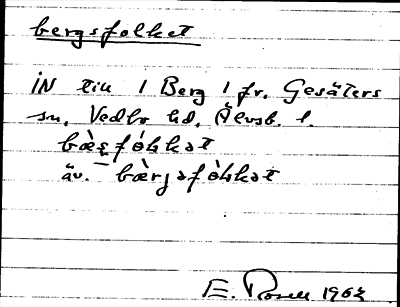 bergsfolket
IN till 1 Berg 1 fr. Gesäters
sn, Vedbo hd, Älvsb. l.
bæ̀sfól̥kət
äv. bæ̀rjsfól̥kət
E. Rosell 1963